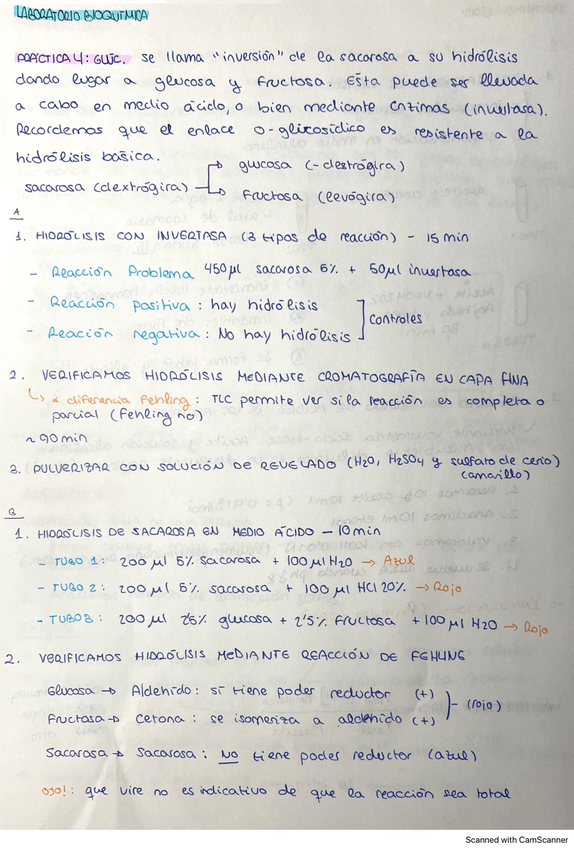 LABORATORIO BIOQUÍMICA
PRÁCTICA 4: GLÚC. se llama "inversión" de la sacarosa a su hidrólisis
dando lugar a glucosa y fructosa. Esta puede ser llevada
a cabo en medio ácido, o bien mediante enzimas (invertasa).
Recordemos que el enlace o-glicosídico es resistente a la
hidrólisis básica.
glucosa (-dextrógira)
sacarosa (dextrógira)
fructosa (levógira)
A
1. HIDRÓLISIS CON INVERTASA (3 tipos de reacción) - 15 min
- Reacción Problema 450 µl sacarosa 5% + 50µl invertasa
- Reacción positiva: hay hidrólisis
controles
- Reacción negativa: No hay hidrólisis
2. VERIFICAMOS HIDRÓLISIS MEDIANTE CROMATOGRAFÍA EN CAPA FINA
a diferencia Fehling: TLC permite ver si la reacción es completa o
parcial (Fehling no)
~ 90 min
3. PULVERIZAR CON SOLUCIÓN DE REVELADO (H2O, H2SO4 y sulfato de cerio)
(amarillo)
B
1. HIDRÓLISIS DE SACAROSA EN MEDIO ÁCIDO - 10 min
- TUBO 1: 200 µl 5% sacarosa + 100 µl H2O → Azul
- TUBO 2: 200 µl 5% sacarosa + 100 µl HCl 20% → Rojo
- TUBO 3: 200 µl 2'5% glucosa + 2'5% fructosa + 100 µl H2O → Rojo
2. VERIFICAMOS HIDRÓLISIS MEDIANTE REACCIÓN DE FEHLING
Glucosa → Aldehído: sí tiene poder reductor (+)
(rojo)
Fructosa → Cetona: se isomeriza a aldehído (+)
Sacarosa → Sacarosa: NO tiene poder reductor (azul)
ojo!: que vire no es indicativo de que la reacción sea total
Scanned with CamScanner